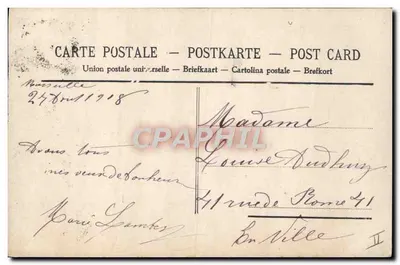 CARTE POSTALE — POSTKARTE — POST CARD
Union postale universelle — Briefkaart — Cartolina postale — Brefkort
Marseille
24 Août 1918
A vous tous
mes vœux de bonheur
Marie
Madame
Louise
41 rue de Rome 41
En Ville
CPRPHIL
II